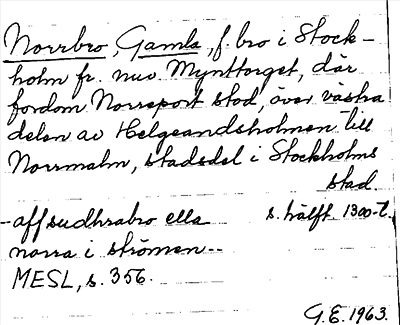 Norrbro, Gamla, f. bro i Stock-
holm fr. nuv. Mynttorget, där
fordom Norreport stod, över västra
delen av Helgeandsholmen till
Norrmalm, stadsdel i Stockholms
stad.
-aff sudhrabro ella s. hälft 1300-t.
norra i strömen--
MESL, s. 356.
G.E. 1963.